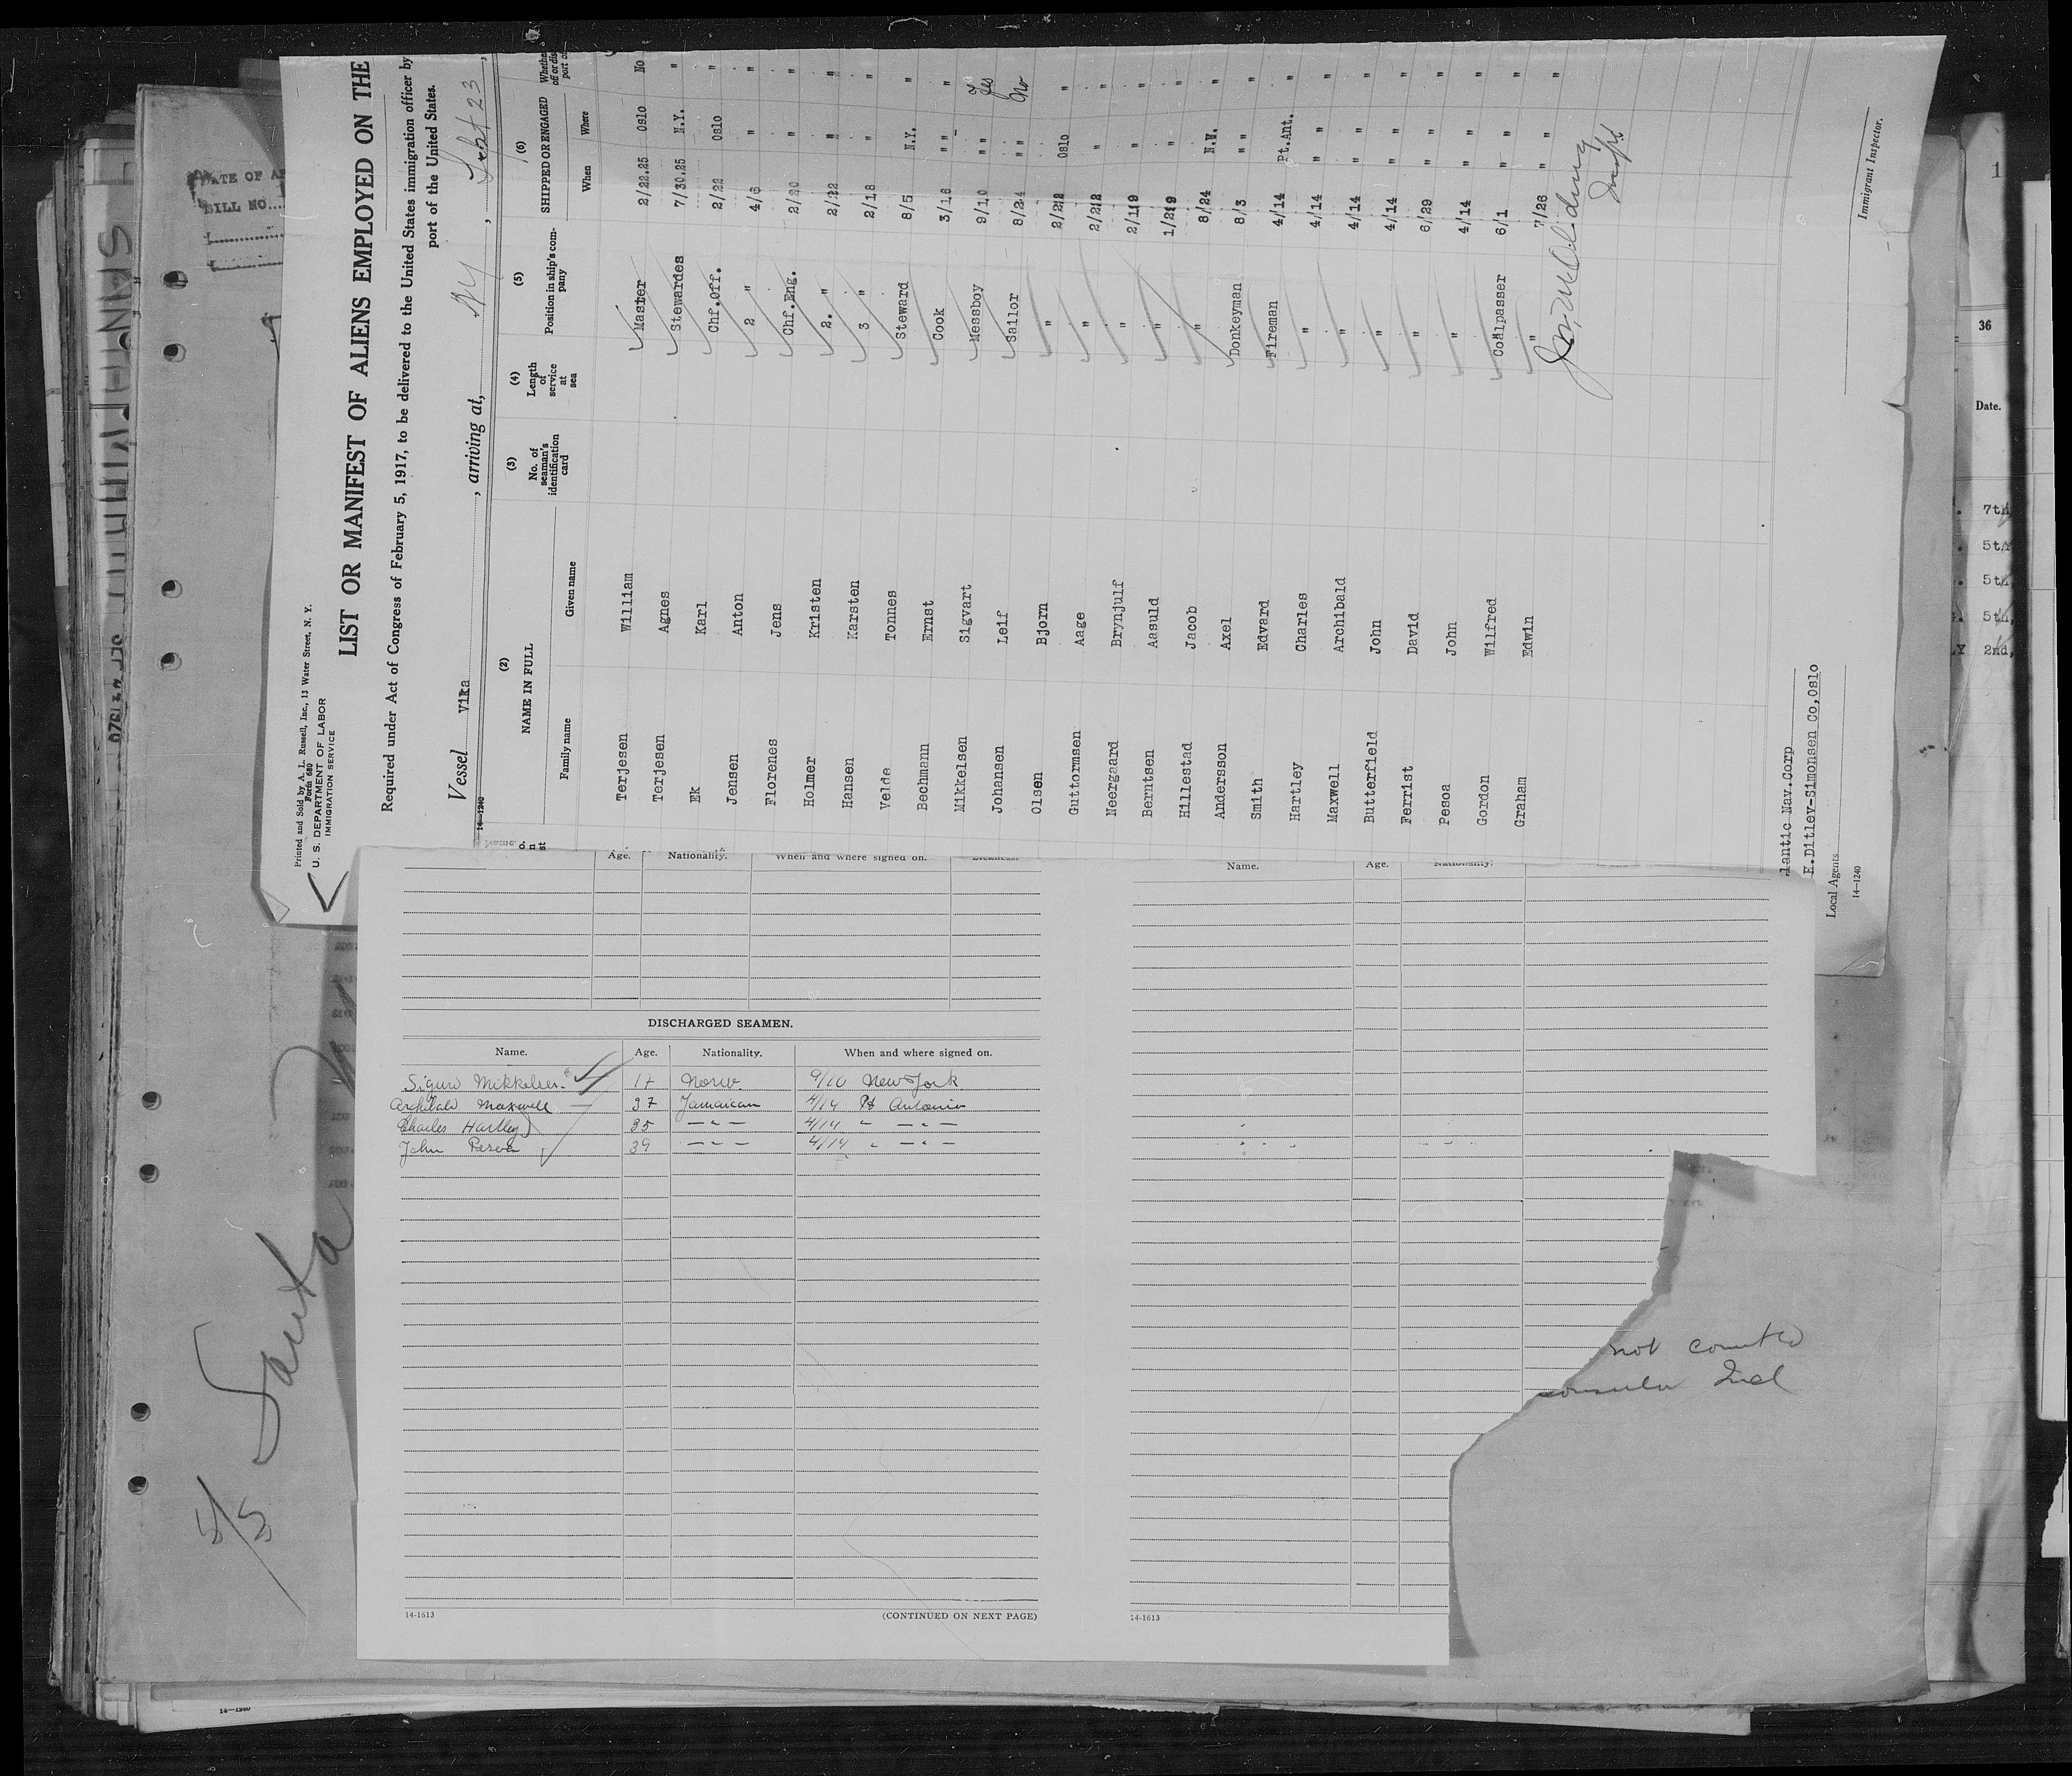 Printed and Sold by A. L. Russell, Inc., 13 Water Street, N. Y.
Form 680
U. S. DEPARTMENT OF LABOR
IMMIGRATION SERVICE
LIST OR MANIFEST OF ALIENS EMPLOYED ON THE
Required under Act of Congress of February 5, 1917, to be delivered to the United States immigration officer by
port of the United States.
Vessel Vika, arriving at, NY, Sept 23,
14—1240
(2) (3) (4) (5) (6)
NAME IN FULL No. of seaman's identification card Length of service at sea Position in ship's company SHIPPED OR ENGAGED
Family name Given name When Where
Terjesen William Master 2/22.25 Oslo No
Terjesen Agnes Stewardes 7/30.25 N.Y. "
Ek Karl Chf.Off. 2/22 Oslo "
Jensen Anton 2 " 4/6 " "
Florenes Jens Chf.Eng. 2/20 " "
Holmer Kristen 2. " 2/22 " "
Hansen Karsten 3 " 2/18 " "
Velde Tonnes Steward 8/5 N.Y. "
Bechmann Ernst Cook 3/16 " " "
Mikkelsen Sigvart Messboy 9/10 " " Yes
Johansen Leif Sailor 8/24 " " No
Olsen Bjorn " 2/22 Oslo "
Guttormsen Aage " 2/22 " "
Neergaard Brynjulf " 2/19 " "
Berntsen Aasuld " 1/29 " "
Hillestad Jacob " 8/24 N.N. "
Andersson Axel Donkeyman 8/3 " " "
Smith Edvard Fireman 4/14 Pt.Ant. "
Hartley Charles " 4/14 " " "
Maxwell Archibald " 4/14 " " "
Butterfield John " 4/14 " " "
Ferrist David " 6/29 " " "
Pesoa John " 4/14 " " "
Gordon Wilfred Coalpasser 6/1 " " "
Graham Edwin " 7/26 " " "
Immigrant Inspector.
lantic Nav.Corp
E.Ditlev-Simonsen Co,Oslo
Local Agents
14—1240
ATE OF A
BILL NO.
Age. Nationality. When and where signed on. Sickness.
DISCHARGED SEAMEN.
Name. Age. Nationality. When and where signed on.
Sigurd Mikkelsen 17 Norw. 9/10 New York
Archibald Maxwell 37 Jamaican 4/14 Pt Antonio
Charles Hartley 35 — " — 4/14 " — " —
John Pesoa 39 — " — 4/14 " — " —
14-1613
(CONTINUED ON NEXT PAGE)
Name. Age. Nationality.
14-1613
not
Santa
5/5
1
36
Date.
7th
5th
5th
5th,
2nd,
14—1240